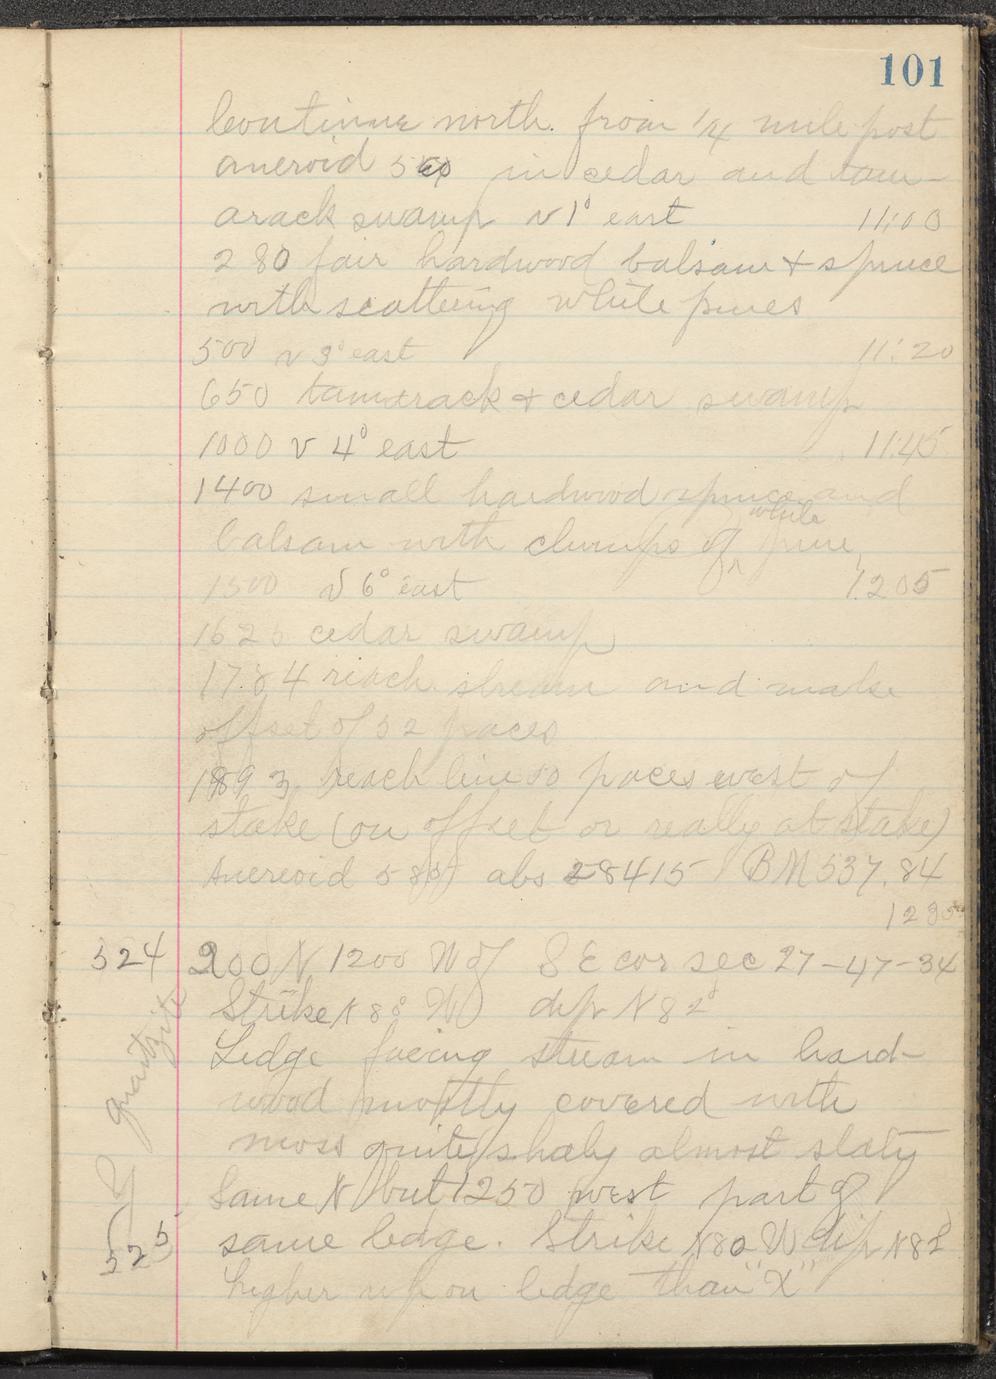 101
Continue north from 1/4 mile post
aneroid in cedar and tam-
arack swamp v 1° east 11:00
280 fair hardwood balsam + spruce
with scattering white pines
500 v 3° east 11:20
650 tamerack + cedar swamp
1000 v 4° east 11:45
1400 small hardwood spruce and
balsam with clumps of white pine,
1500 v 6° east 12 05
1625 cedar swamp
1784 reach stream and make
offset of 52 paces
1893 reach line 50 paces west of
stake (on offset or really at stake)
Aneroid abs 28415 BM 537.84
1235
524 200 N 1200 W of S E cor sec 27-47-34
Strike N 88° W dip N 82°
Ledge facing stream in hard-
wood mostly covered with
moss quite shaly almost slaty
quartzite
525 Same N but 1250 west part of
same ledge. Strike N80 W dip N82
higher up on ledge than "X"